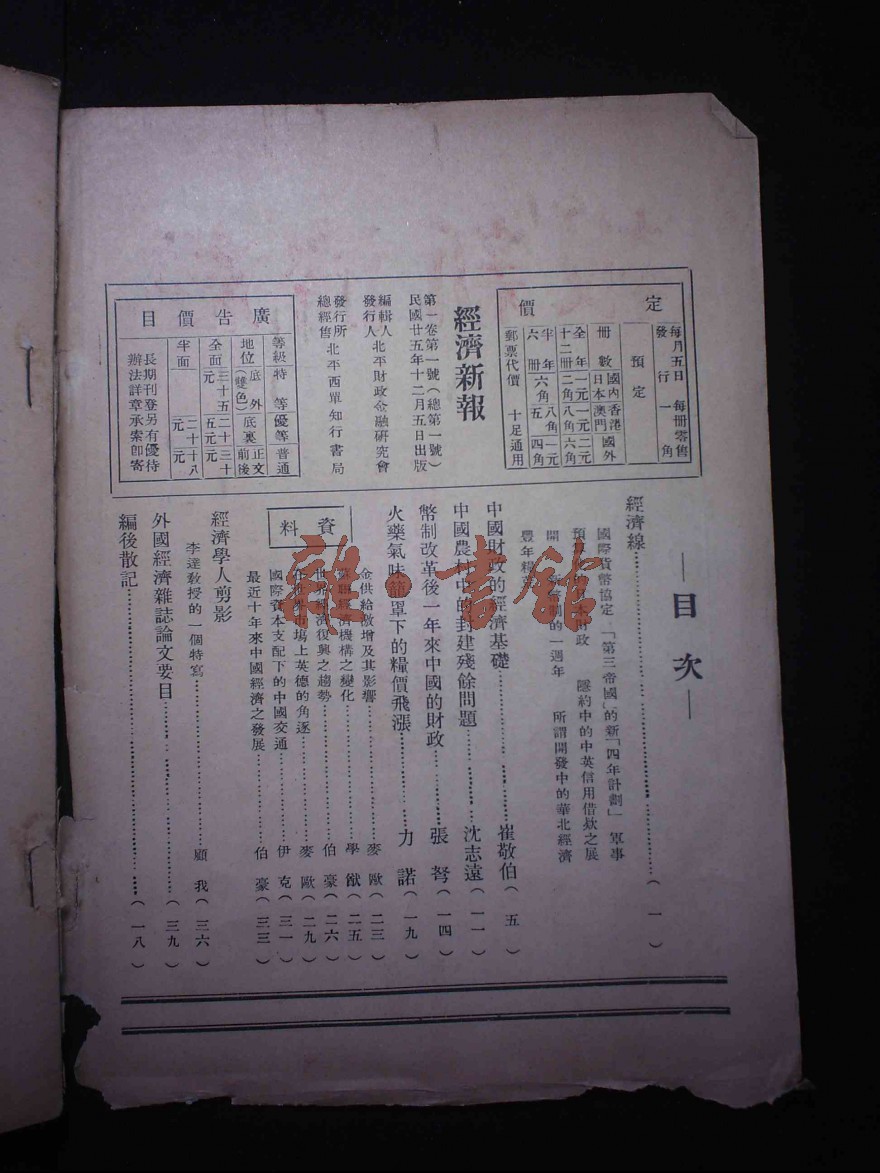 定價
每月五日發行
每冊零售一角
預定
冊數 國內日本 香港澳門 國外
全年十二冊 一元二角 一元八角 二元六角
半年六冊 六角 八角五 一元四角
郵票代價 十足通用
經濟新報
第一卷第一號(總第一號)
民國廿五年十二月五日出版
編輯人
發行人
北平財政金融研究會
發行所
總經售
北平西單知行書局
廣告價目
等級 特等 優等 普通
地位 底外(雙色) 底裏 正文前後
全面 三十五元 二十五元 三十元
半面 二十元 十八元
長期刊登另有優待
辦法詳章承索即寄
—目次—
經濟線……(一)
國際貨幣協定 「第三帝國」的新「四年計劃」 軍事
預算的日本財政 隱約中的中英信用借款之展
開 新幣制的一週年 所謂開發中的華北經濟
豐年糧荒
中國財政的經濟基礎……崔敬伯(五)
中國農村中的封建殘餘問題……沈志遠(一一)
幣制改革後一年來中國的財政……張弩(一四)
火藥氣味籠罩下的糧價飛漲……力諾(一九)
資料
金供給激增及其影響……麥歐(二三)
蘇聯經濟機構之變化……學猷(二五)
世界經濟復興之趨勢……伯豪(二六)
在世界市場上英德的角逐……麥歐(二九)
國際資本支配下的中國交通……伊克(三一)
最近十年來中國經濟之發展……伯豪(三三)
經濟學人剪影
李達教授的一個特寫……顧我(三六)
外國經濟雜誌論文要目……(三九)
編後散記……(一八)
雜·書館